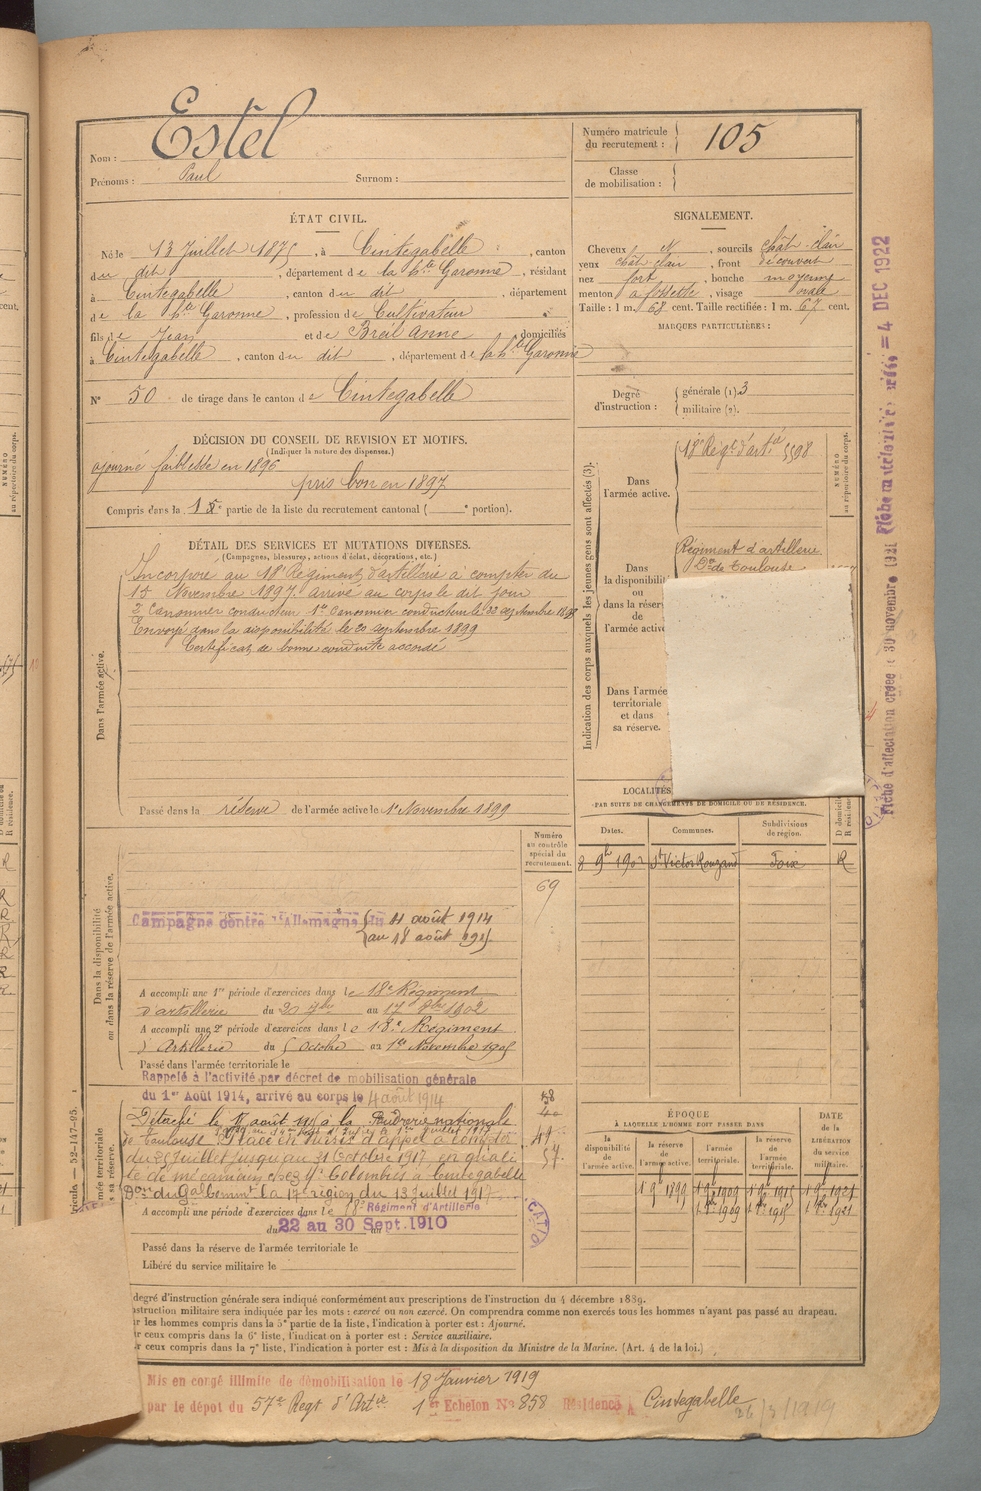 Nom : Estel
Prénoms : Paul Surnom :
Numéro matricule du recrutement : 105
Classe de mobilisation :
ÉTAT CIVIL.
Né le 13 Juillet 1875, à Cintegabelle, canton
du dit, département de la Hte Garonne, résidant
à Cintegabelle, canton du dit, département
de la Hte Garonne, profession de Cultivateur
fils de Jean et de Breil Anne domiciliés
à Cintegabelle, canton du dit, département de la Hte Garonne
N° 50 de tirage dans le canton de Cintegabelle
SIGNALEMENT.
Cheveux et, sourcils chât-clair
yeux chât-clair, front découvert
nez fort, bouche moyenne
menton à fossette, visage ovale
Taille : 1 m. 68 cent. Taille rectifiée : 1 m. 67 cent.
MARQUES PARTICULIÈRES :
Degré d'instruction : générale (1) 3
militaire (2).
DÉCISION DU CONSEIL DE REVISION ET MOTIFS.
(Indiquer la nature des dispenses.)
ajourné faiblesse en 1896
pris bon en 1897
Compris dans la 1e partie de la liste du recrutement cantonal ( e portion).
DÉTAIL DES SERVICES ET MUTATIONS DIVERSES.
(Campagnes, blessures, actions d'éclat, décorations, etc.)
Dans l'armée active.
Incorporé au 18e Régiment d'artillerie à compter du
15 Novembre 1897. arrivé au corps le dit jour
2e Canonnier conducteur 1er Canonnier conducteur le 22 septembre 1898
Envoyé dans la disponibilité le 20 septembre 1899
Certificat de bonne conduite accordé
Passé dans la réserve de l'armée active le 1er Novembre 1899
Indication des corps auxquels les jeunes gens sont affectés (3).
NUMÉRO au répertoire du corps.
Dans l'armée active.
18e Régt d'artie 5598
Dans la disponibilité ou dans la réserve de l'armée active
Régiment d'artillerie
Don de Toulouse
Dans l'armée territoriale et dans sa réserve.
LOCALITÉS
PAR SUITE DE CHANGEMENTS DE DOMICILE OU DE RÉSIDENCE.
Dates. Communes. Subdivisions de région. D domicile R résidence.
8 9h 1902 St Victor Rouzaud Foix R
Dans la disponibilité ou dans la réserve de l'armée active.
Numéro au contrôle spécial du recrutement.
69
Campagne contre l'Allemagne du 11 août 1914
au 18 août 1915
A accompli une 1re période d'exercices dans le 18e Régiment
d'artillerie du 20 7bre au 17 8bre 1902
A accompli une 2e période d'exercices dans le 18e Régiment
d'Artillerie du 5 Octobre au 1er Novembre 1905
Passé dans l'armée territoriale le
Rappelé à l'activité par décret de mobilisation générale
du 1er Août 1914, arrivé au corps le 4 août 1914
Détaché le août 1915 à la Poudrerie nationale
de Toulouse. Placé en sursis d'appel à compter
du 25 Juillet jusqu'au 31 Octobre 1917 en quali
té de mécanicien chez Mr Colombiès à Cintegabelle
Don du Gal Commt la 17e région du 13 Juillet 1917
A accompli une période d'exercices dans le 18e Régiment d'Artillerie
du 22 au 30 Sept. 1910
Passé dans la réserve de l'armée territoriale le
Libéré du service militaire le
ÉPOQUE
À LAQUELLE L'HOMME DOIT PASSER DANS
la disponibilité de l'armée active.
la réserve de l'armée active.
l'armée territoriale.
la réserve de l'armée territoriale.
DATE DE LA LIBÉRATION du service militaire.
1 9h 1899 1 9h 1909 1 9h 1915 1 9h 1921
degré d'instruction générale sera indiqué conformément aux prescriptions de l'instruction du 4 décembre 1889.
instruction militaire sera indiquée par les mots : exercé ou non exercé. On comprendra comme non exercés tous les hommes n'ayant pas passé au drapeau.
les hommes compris dans la 5e partie de la liste, l'indication à porter est : Ajourné.
ceux compris dans la 6e liste, l'indication à porter est : Service auxiliaire.
ceux compris dans la 7e liste, l'indication à porter est : Mis à la disposition du Ministre de la Marine. (Art. 4 de la loi.)
Mis en congé illimité de démobilisation le 18 Janvier 1919
par le dépôt du 57e Regt d'Artie 1er Echelon N° 858 Résidence à Cintegabelle
26/3/1919
Fiche d'affectation créée le 30 novembre 1921
= 4 DEC 1922